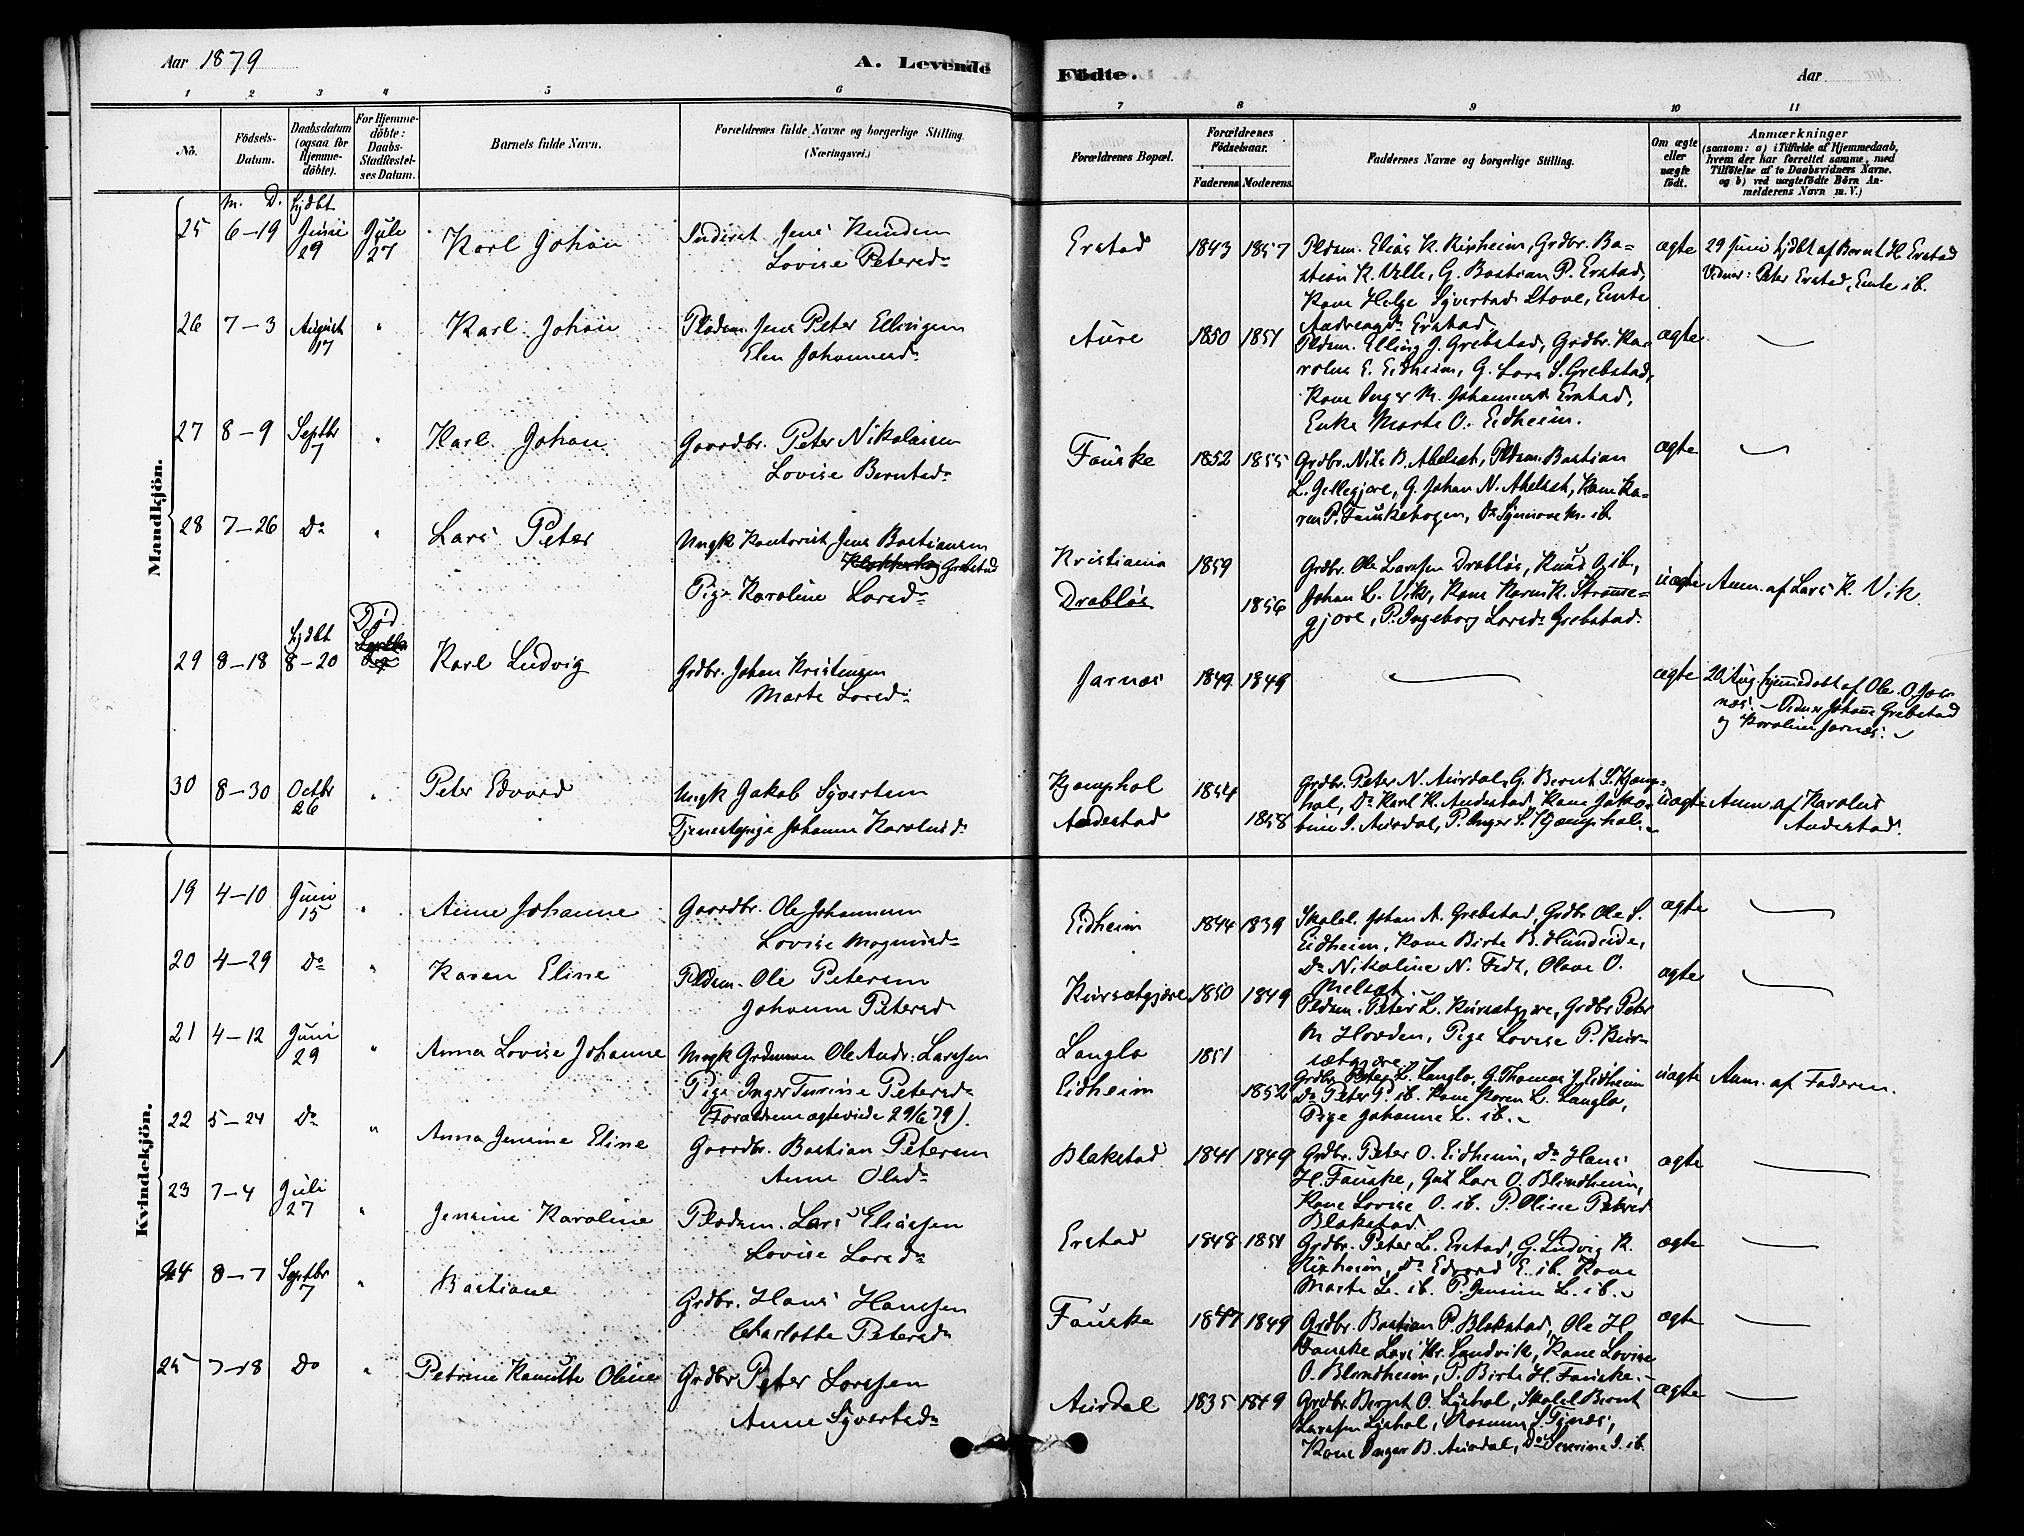 Aar 1879
A. Levende
Födte.
Aar
1 2 3 4 5 6 7 8 9 10 11
No.
Födsels-Datum.
Daabsdatum (ogsaa for Hjemmedöbte).
For Hjemmedöbte: Daabs-Stadfæstelses Datum.
Barnets fulde Navn.
Forældrenes fulde Navne og borgerlige Stilling.
(Næringsvei.)
Forældrenes Bopæl.
Forældrenes Födselsaar.
Faderens Moderens
Faddernes Navne og borgerlige Stilling.
Om ægte eller uægte födt.
Anmærkninger
(saasom: a) i Tilfælde af Hjemmedaab, hvem der har forrettet samme, med Tilföielse af to Daabsvidners Navne. og b) ved uægtefödte Börn Anmelderens Navn m. V.)
Mandkjön.
M. D. hjdbt
25 6-19 Juni 29 Juli 27 Karl Johan
Inderst Jens Knudsen
Lovise Petersd.
Erstad 1843 1857
Pldsm. Elias K. Ripheim, Grdbr. Ba-
stian K. Velle, G. Bastian P. Erstad,
Kone Helge Syvertsd. Stove, Enke
Andreasd. Erstad.
ægte
29 Juni hjdbt af Bernt H. Erstad
Vidner: Peter Erstad, Enke ib.
26 7-3 August 17 " Karl Johan
Pladsm. Jens Peter Ellingsen
Elen Johannesd.
Aure 1850 1851
Pldsm. Elling J. Grebstad, Grdbr. Ka-
rolus E. Eidheim, G. Lars S. Grebstad,
Kone Inger M. Johannesd. Erstad,
Enke Marte O. Eidheim.
ægte
27 8-9 Septbr 7 " Karl Johan
Gaardbr. Peter Nikolaisen
Lovise Berntsd.
Fauske 1852 1855
Grdbr. Nils B. Abelset, Pldsm. Bastian
L. Gjellegjære, G. Johan N. Abelset, Kone Ka-
ren P. Fauskehagen, Do Synnove M. ib.
ægte
28 7-26 Do " Lars Peter
Ungk Kontorist Jens Bastiansen
Grebstad
Pige Karoline Larsd.
Kristiania 1859
Drabløs 1856
Grdbr. Ole Larssen Drabløs, Knud O. ib,
Johan L. Vik, Kone Karen K. Strømme-
gjære, P. Ingeborg Larsd. Grebstad.
uægte
Anm. af Lars K. Vik.
29 8-18 hjdbt 8-20 Død
Karl Ludvig
Grdbr. Johan Kristensen
Marte Larsd.
Jarnæs 1849 1849
ægte
20 Aug. hjemmedøbt af Ole O. Jar-
næs. - Vidner Johanne Grebstad
og Karoline Jarnæs.
30 8-30 Octbr 26 " Peter Edvard
Ungk Jakob Syvertsen
Tjenestepige Johanne Karolusd.
Kjæmphol 1854
Andestad 1858
Grdbr. Peter N. Aurdal, G. Bernt S. Kjæmp-
hol, Do Karl K. Andestad, Kone Jako-
bine I. Aurdal, P. Inger S. Kjæmphol.
uægte
Anm. af Karolus
Andestad.
Kvindekjön.
19 4-10 Juni 15 " Anne Johanne
Gaardbr. Ole Johannesen
Lovise Magnusd.
Eidheim 1844 1839
Skolel. Johan A. Grebstad, Grdbr. Ole S.
Eidheim, Kone Birte B. Hundeide,
Do Nikoline N. Fedt, Olave O.
Melset.
ægte
20 4-29 Do " Karen Eline
Pldsm. Ole Petersen
Johanne Petersd.
Kursætgjære 1850 1849
Pldsm. Peter L. Kursætgjære, Grdbr. Peter
M Hovden, Pige Lovise P. Kur-
sætgjære.
ægte
21 4-12 Juni 29 " Anna Lovise Johanne
Ungk Grdmann Ole Andr. Larssen
Pige Inger Turine Petersd.
(Forældrene ægteviede 29/6 79).
Langlo 1851
Eidheim 1852
Grdbr. Peter L. Langlo, G. Thomas J. Eidheim
Do Peter P. ib. Kone Karen L. Langlo,
Pige Johanne L. ib.
uægte
Anm. af Faderen.
22 5-24 Do " Anna Jensine Eline
Gaardbr. Bastian Petersen
Anne Olsd.
Blakstad 1841 1849
Grdbr. Peter O. Eidheim, Do Hans
H. Fauske, Gut Lars O. Blindheim,
Kone Lovise O. ib. P. Oline Petersd
Blakstad
ægte
23 7-4 Juli 27 " Jensine Karoline
Pladsm. Lars Eliassen
Lovise Larsd.
Erstad 1848 1851
Grdbr. Peter L. Erstad, G. Ludvig K.
Ripheim, Do Edvard E. ib. Kone
Marte L. ib. P. Jensine L. ib.
ægte
24 8-7 Septbr 7 " Bastiane
Grdbr. Hans Hanssen
Charlotte Petersd.
Fauske 1847 1849
Grdbr. Bastian P. Blakstad, Ole H
Fauske Lars Kr. Sandvik, Kone Lovise
O. Blindheim, P. Birte H. Fauske.
ægte
25 7-18 Do " Petrine Knutte Oline
Grdbr Peter Larssen
Anne Syvertsd.
Aurdal 1835 1849
Grdbr. Bernt O. Ljshol, Skolel Bernt
Larssen Lyshol, Rasmus S. Tynes,
Kone Inger B. Aurdal, Do Severine I. ib.
ægte